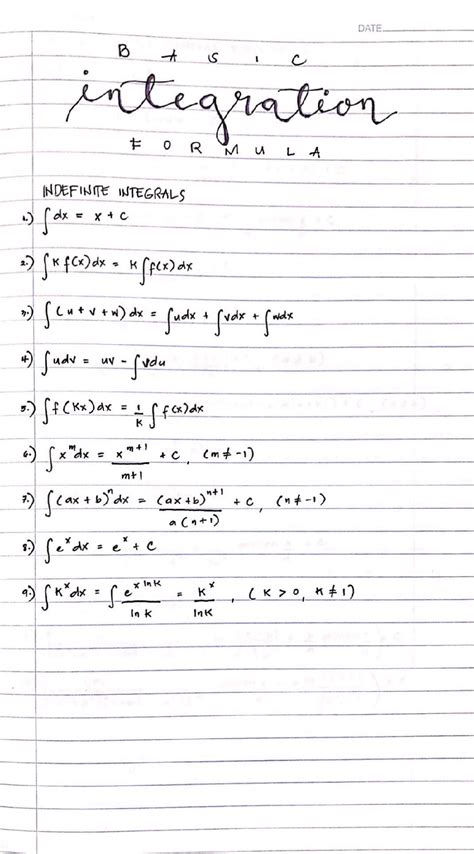 DATE
BASIC
integration
FORMULA
INDEFINITE INTEGRALS
1.) ∫dx = x + c
2.) ∫K f(x)dx = K∫f(x)dx
3.) ∫(u + v + w)dx = ∫udx + ∫vdx + ∫wdx
4.) ∫udv = uv - ∫vdu
5.) ∫f(Kx)dx = 1/K ∫f(x)dx
6.) ∫x^m dx = x^(m+1)/(m+1) + C, (m ≠ -1)
7.) ∫(ax + b)^n dx = (ax + b)^(n+1)/(a(n+1)) + C, (n ≠ -1)
8.) ∫e^x dx = e^x + C
9.) ∫K^x dx = ∫e^(x ln K)/(ln K) = K^x/(ln K), (K > 0, K ≠ 1)